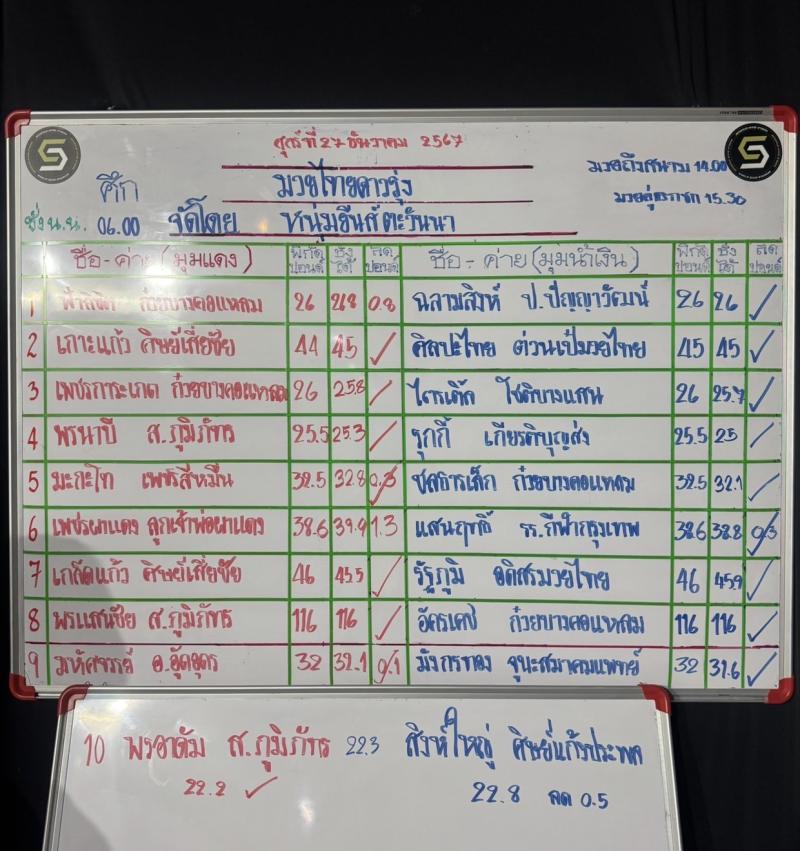 ศุกร์ที่ 27 ธันวาคม 2567
ศึก มวยไทยดาวรุ่ง มวยถึงสนาม 14.00
ชั่ง น.น. 06.00 จัดโดย หนุ่มอีนส์ตะวันนา มวยคู่แรกชก 15.30
ชื่อ - ค่าย (มุมแดง) พิกัด ปอนด์ ชั่งได้ ลด ปอนด์ ชื่อ - ค่าย (มุมน้ำเงิน) พิกัด ปอนด์ ชั่งได้ ลด ปอนด์
1 ก๋วยบางคอแหลม 26 26.8 0.8 ฉลามสิงห์ ป.ปัญญาวัฒน์ 26 26 ✓
2 เกาะแก้ว ศิษย์เสี่ยชัย 44 45 ✓ ศิลปะไทย ต่วนเป๋มวยไทย 45 45 ✓
3 เพชรการะเกด ก๋วยบางคอแหลม 26 25.8 ✓ ไตรเติ้ล โชติบางแสน 26 25.7 ✓
4 พรนาบี ส.ภูมิภัทร 25.5 25.3 ✓ รุกกี้ เกียรติบุญส่ง 25.5 25 ✓
5 มะกะโท เพชรสี่หมื่น 32.5 32.8 0.3 ชลธารเล็ก ก๋วยบางคอแหลม 32.5 32.1 ✓
6 เพชรผาแดง ลูกเจ้าพ่อผาแดง 38.6 39.9 1.3 แสนฤทธิ์ รร.กีฬากรุงเทพ 38.6 38.8 0.3
7 เกล็ดแก้ว ศิษย์เสี่ยชัย 46 45.5 ✓ รัฐภูมิ อดิศรมวยไทย 46 45.9 ✓
8 พรแสนชัย ส.ภูมิภัทร 116 116 ✓ อัครเดช ก๋วยบางคอแหลม 116 116 ✓
9 มหัศจรรย์ อ.อู๊ดอุดร 32 32.1 0.1 มังกรทอง จูนะสมาคมแพทย์ 32 31.6 ✓
10 พรอาดัม ส.ภูมิภัทร 22.3 สิงห์ใหญ่ ศิษย์แก้วประพล
22.2 ✓ 22.8 ลด 0.5